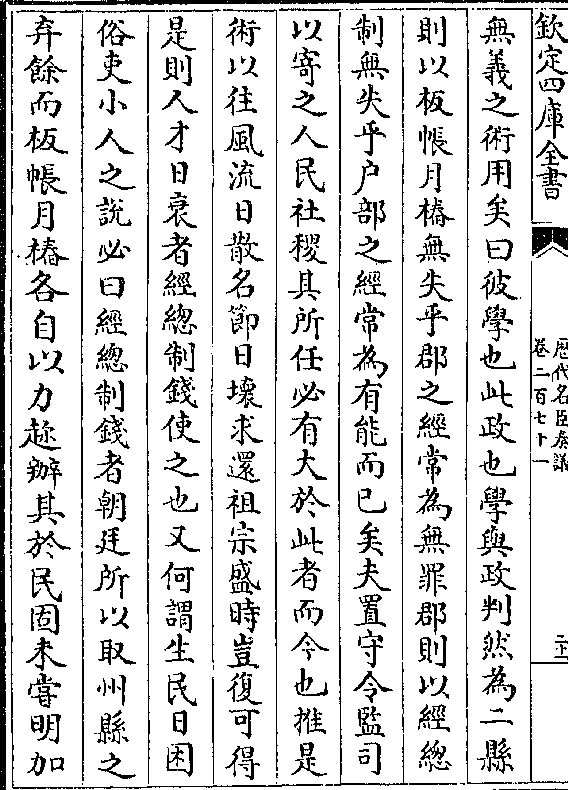 欽定四庫全書
歷代名臣奏議
卷二百七十一
無義之術用矣曰彼學也此政也學與政判然為二縣
則以板帳月樁無失乎郡之經常為無罪郡則以經總
制無失乎户部之經常為有能而已矣夫置守令監司
以寄之人民社稷其所任必有大於此者而今也推是
術以往風流日散名節日壞求還祖宗盛時豈復可得
是則人才日衰者經總制錢使之也又何謂生民日困
俗吏小人之說必曰經總制錢者朝廷所以取州縣之
弃餘而板帳月樁各自以力趂辦其於民固未嘗明加